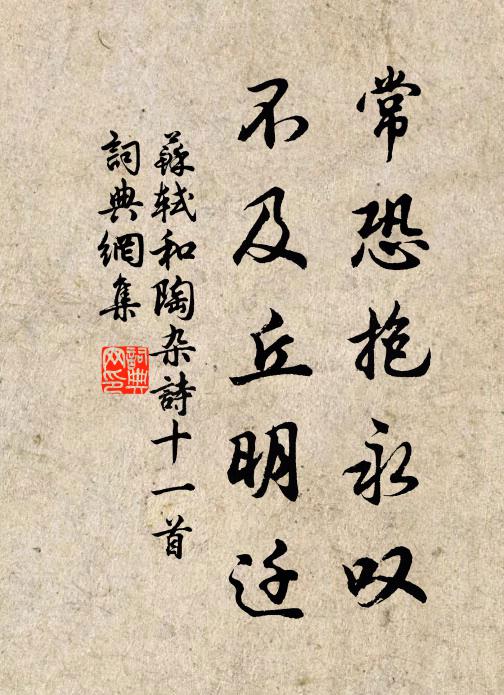 常恐抱永叹
不及丘明迁
蘇軾和陶杂詩十一首
詞典網集
詞典网印